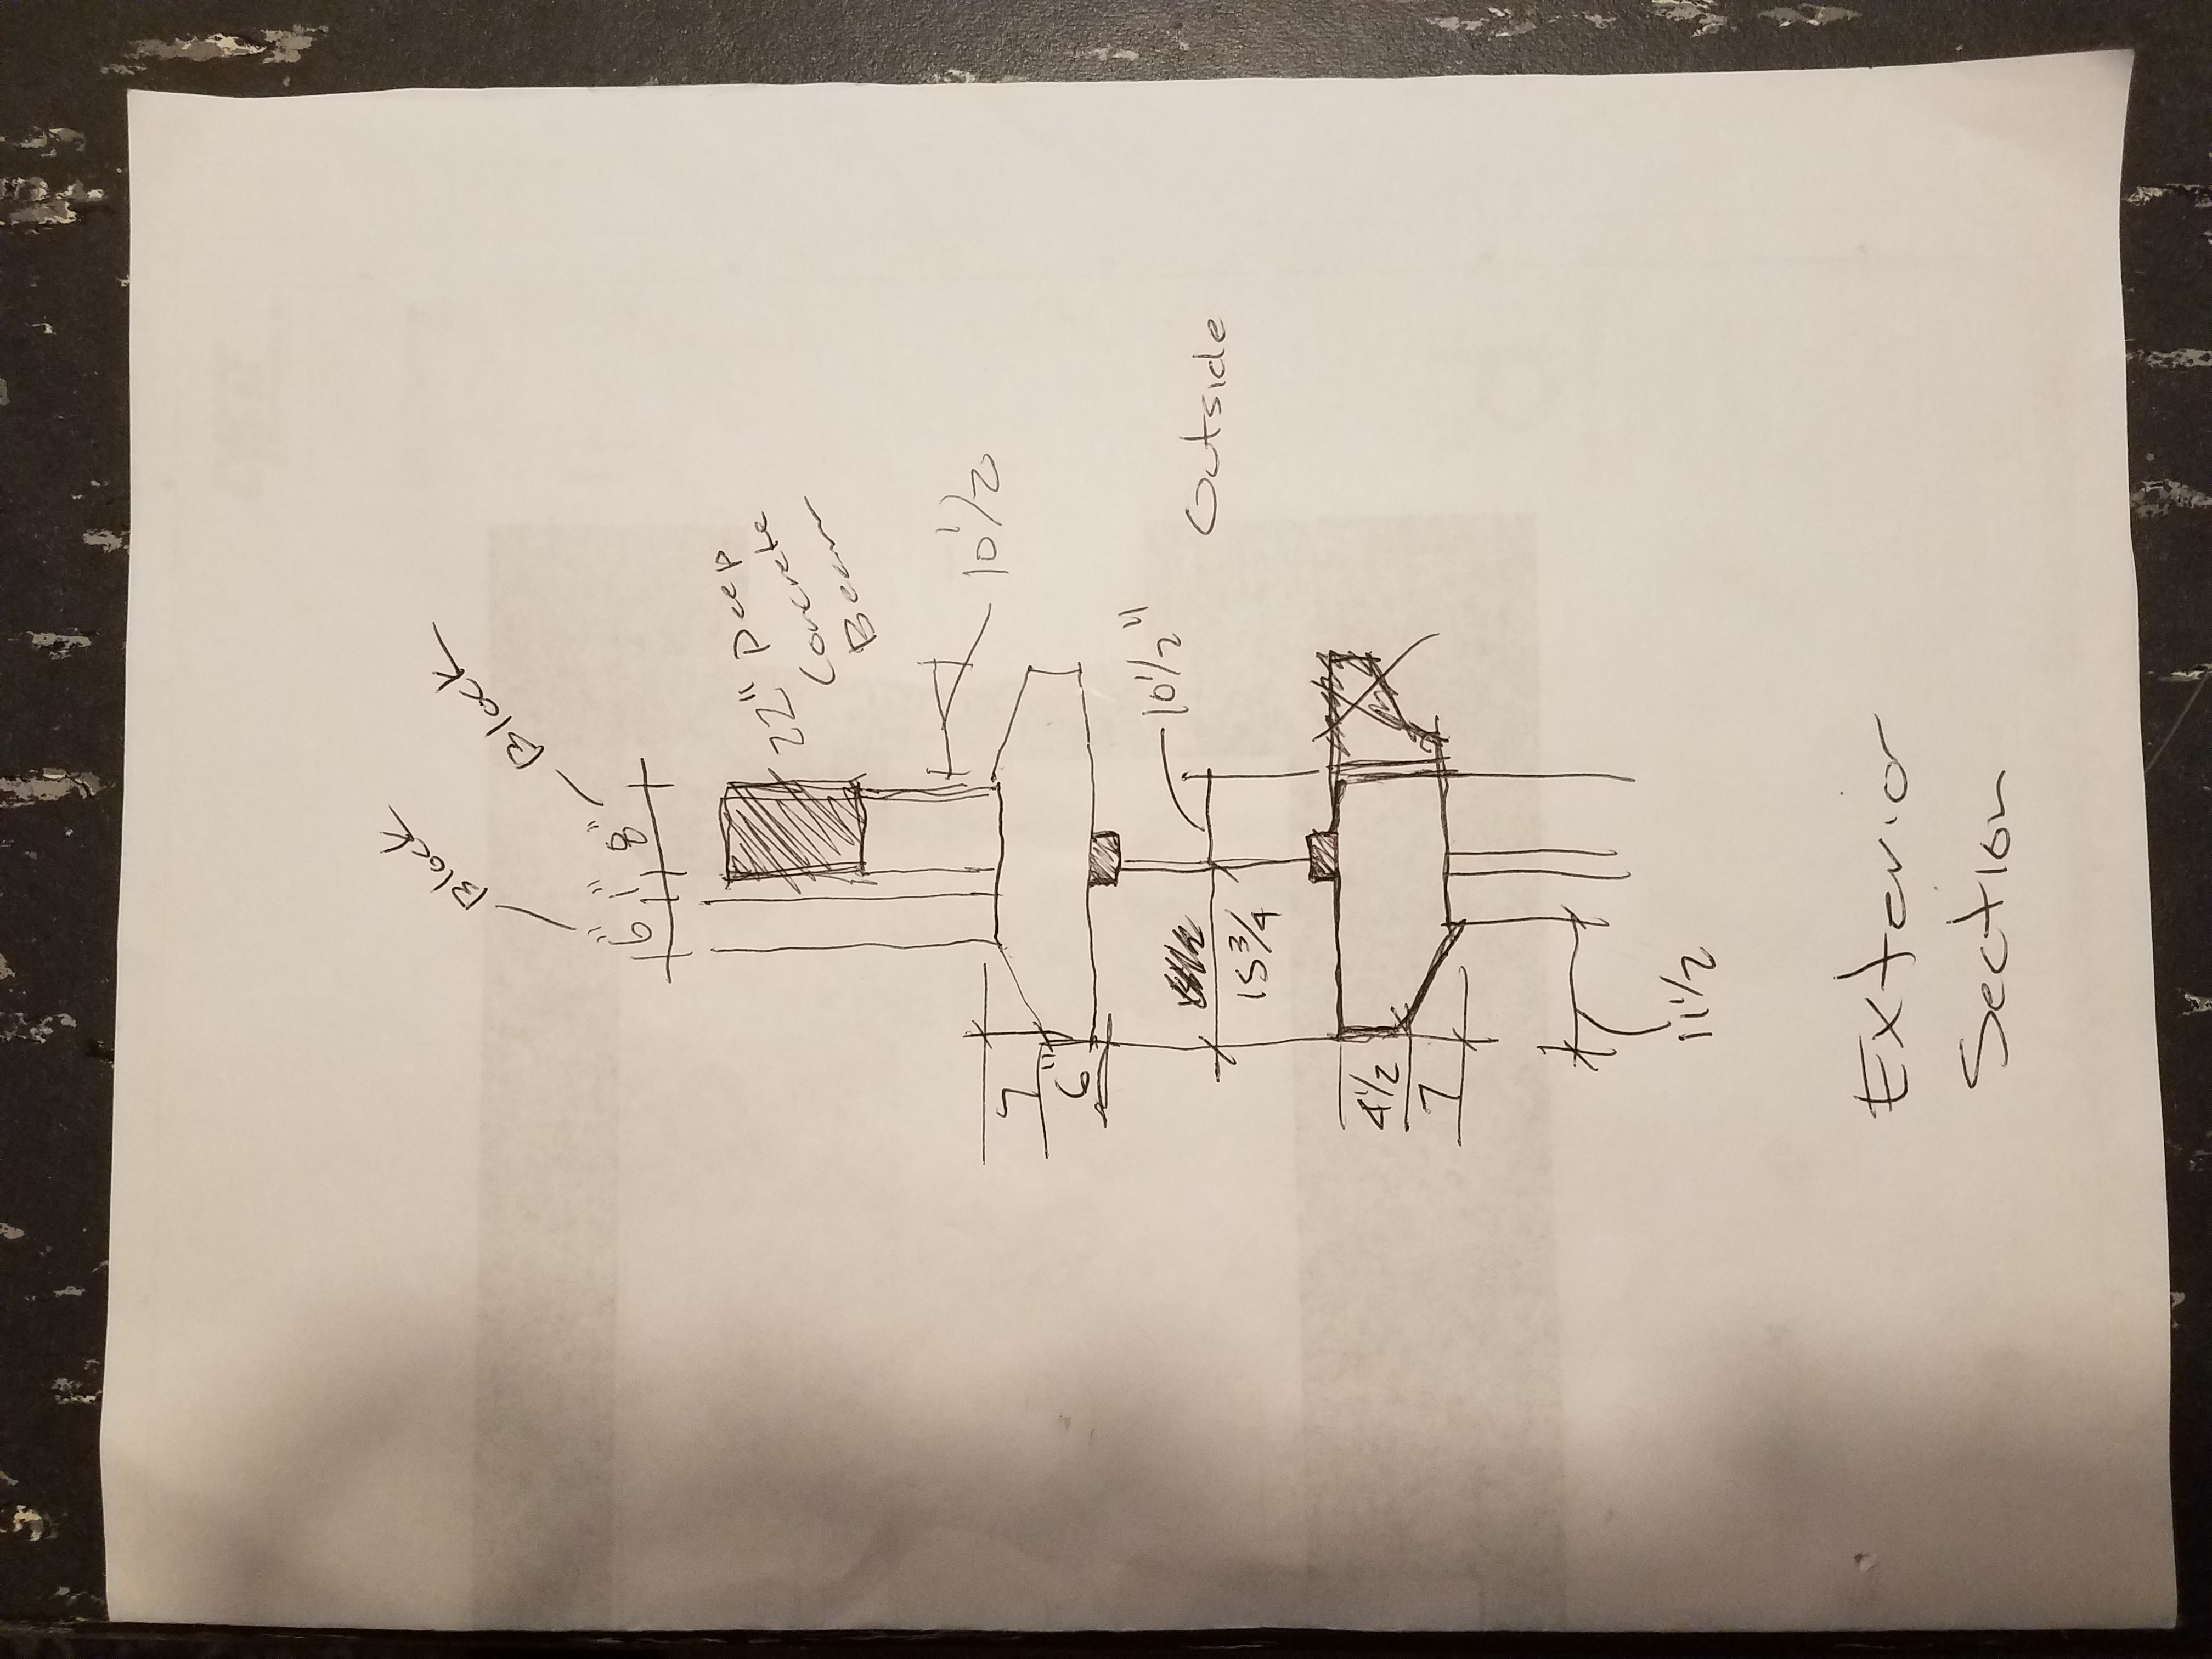 Block
Block
6" 1" 8"
22" Deep
Concrete
Beam
10 1/2
7
6"
10 1/2"
Outside
15 3/4
4 1/2
7
11 1/2
Exterior
Section